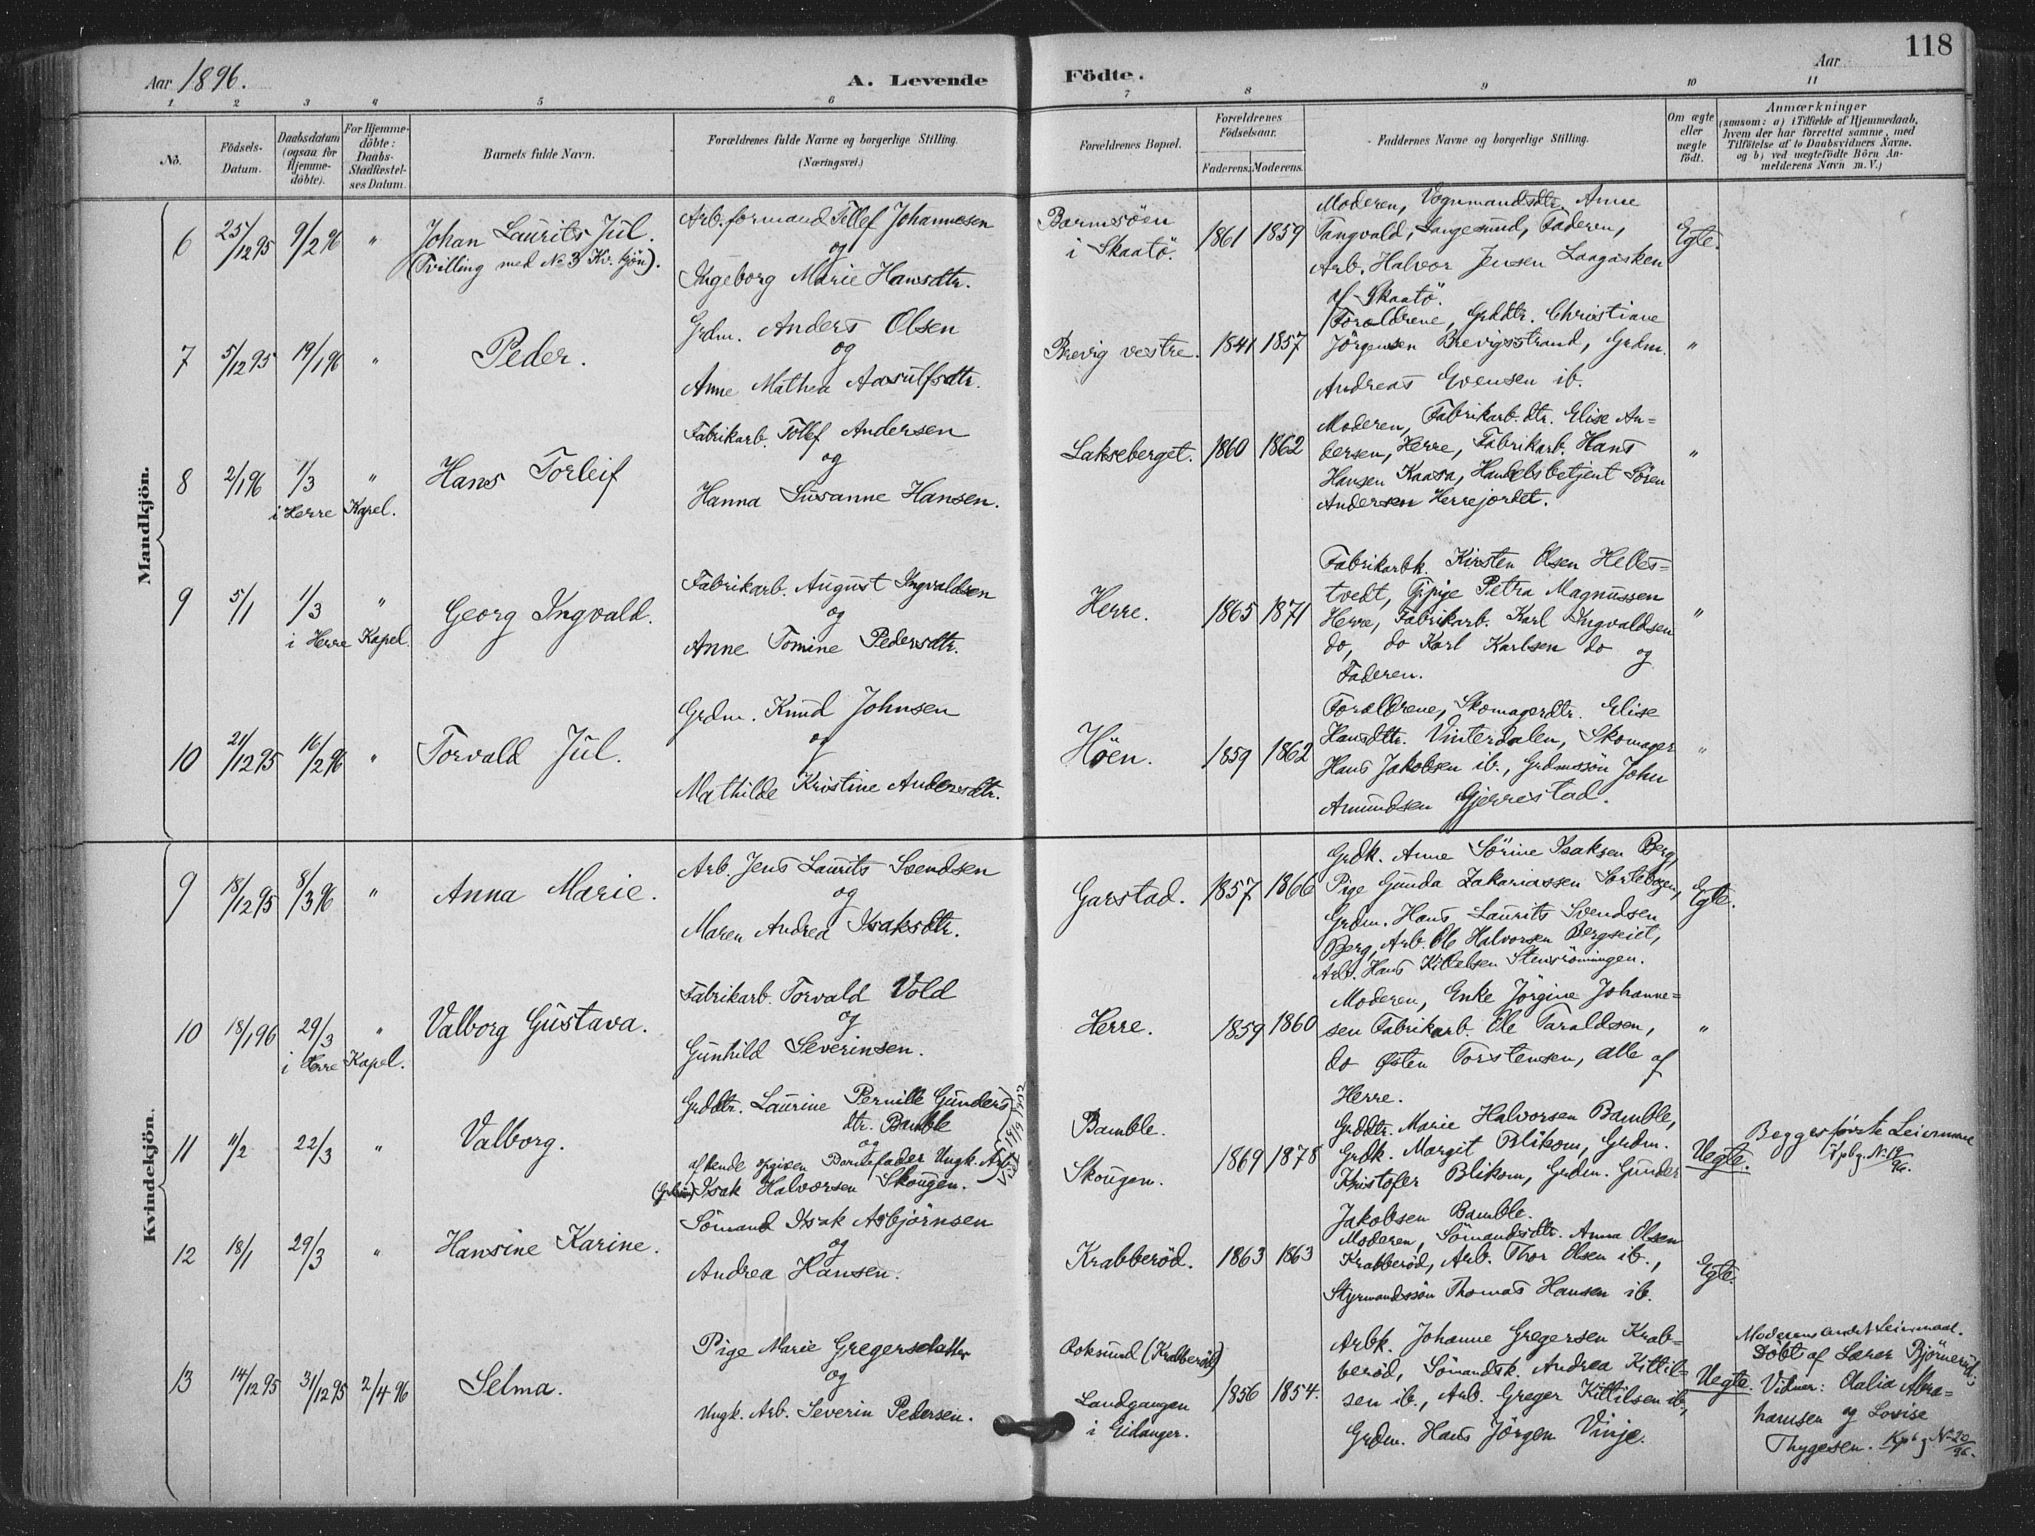 118
Aar 1896.
A. Levende
Födte.
Aar
1 2 3 4 5 6
7 8 9 10 11
No.
Födsels-
Datum.
Daabsdatum
(ogsaa for
Hjemme-
döbte).
For Hjemme-
döbte:
Daabs-
Stadfæstel-
ses Datum.
Barnets fulde Navn.
Forældrenes fulde Navne og borgerlige Stilling.
(Næringsvei.)
Forældrenes Bopæl.
Forældrenes
Födselsaar.
Faderens. Moderens.
Faddernes Navne og borgerlige Stilling.
Om ægte
eller
uægte
födt.
Anmærkninger
(saasom: a) i Tilfælde af Hjemmedaab,
hvem der har forrettet samme, med
Tilföielse af to Daabsvidners Navne.
og b) ved uægtefödte Börn An-
melderens Navn m. V.)
Mandkjön.
6 25/12 95 9/2 96 "
Johan Laurits Jul.
(Tvilling med No 3 Kv. kjön).
Arb.formand Tellef Johannesen
og
Ingeborg Marie Hansdtr.
Barmsöen
i Skaatö.
1861 1859
Moderen, Vognmandsdtr. Anne
Tangvald, Langesund, Faderen,
Arb. Halvor Jensen Laagasken
af Skaatö.
Egte.
7 5/12 95 19/1 96 "
Peder.
Grdm. Anders Olsen
og
Anne Mathea Aasulfsdtr.
Brevig vestre.
1841 1857
Forældrene, Grddtr. Christiane
Jörgensen Brevigsstrand, Grdm.
Andreas Evensen ib.
"
8 2/1 96 1/3 "
i Herre Kapel.
Hans Torleif
Fabrikarb. Tollef Andersen
og
Hanna Susanne Hansen.
Lakseberget.
1860 1862
Moderen, Fabrikarb.dtr. Elise An-
dersen, Herre, Fabrikarb. Hans
Hansen Kaasa, Handelsbetjent Sören
Andersen Herrejordet.
"
9 5/1 1/3 "
i Herre Kapel.
Georg Ingvald.
Fabrikarb. August Ingvaldsen
og
Anne Tomine Pedersdtr.
Herre.
1865 1871
Fabrikarbk. Kirsten Olsen Helles-
tvedt, Pige Petra Magnussen
Herre, Fabrikarb. Karl Ingvaldsen
do, do Karl Karlsen do og
Faderen.
"
10 21/12 95 16/2 96 "
Torvald Jul.
Grdm. Knud Johnsen
og
Mathilde Kristine Andersdtr.
Höen.
1859 1862
Forældrene, Skomagerdtr. Elise
Hansdtr. Vinterdalen, Skomager
Hans Jakobsen ib., Grdmssön John
Amundsen Gjerrestad.
"
Kvindekjön.
9 18/12 95 8/3 96 "
Anna Marie.
Arb. Jens Laurits Svendsen
og
Maren Andrea Isaksdtr.
Garstad.
1857 1866
Grdk. Anne Sörine Isaksen Berg,
Pige Gunda Zakariassen Sortebogen,
Grdm. Hans Laurits Svendsen
Berg, Arb. Ole Halvorsen Bergseiet,
Arb. Hans Kittelsen Stensrönningen.
Egte.
10 18/1 96 29/3 "
i Herre Kapel.
Valborg Gustava.
Fabrikarb. Torvald Vold
og
Gunhild Severinsen.
Herre.
1859 1860
Moderen, Enke Jörgine Johanne-
sen Fabrikarb. Ole Taraldsen,
do Östen Torstensen, alle af
Herre.
"
11 11/2 22/3 "
Valborg.
Grddtr. Laurine Pernille Gunders
dtr. Bamble
og
af hende opgiven Barnefader Ungk. Arb.
Isak Halvorsen Skougen.
Bamble.
Skougen.
1869 1878
Grddtr. Marie Halvorsen Bamble,
Grdk. Margit Blikom, Grdm.
Kristofer Blikom, Grdm. Gunder
Jakobsen Bamble.
Uegte.
Begges förste Leiermaal
Kpbg. No 19/96.
12 18/1 29/3 "
Hansine Karine.
Sömand Isak Asbjörnsen
og
Andrea Hansen.
Krabberöd.
1863 1863
Moderen, Sömandsdtr. Anna Olsen
Krabberöd, Arb. Thor Olsen ib.,
Styrmandssön Thomas Hansen ib.
Egte.
13 14/12 95 31/12 95 2/4 96
Selma.
Pige Marie Gregersdatter
og
Ungk. Arb. Severin Pedersen.
Roksund (Krabberöd)
Landgangen
i Eidanger.
1856 1854.
Arbk. Johanne Gregersen Krab-
beröd, Sömandsk. Andrea Kittil-
sen ib., Arb. Greger Kittilsen ib,
Grdm. Hans Jörgen Vinje.
Uegte.
Moderens andet Leiermaal.
Döbt af Lærer Björneröd;
Vidner: Olalia Abra-
hamsen og Lovise
Thygesen. Kpbg No 20/96.